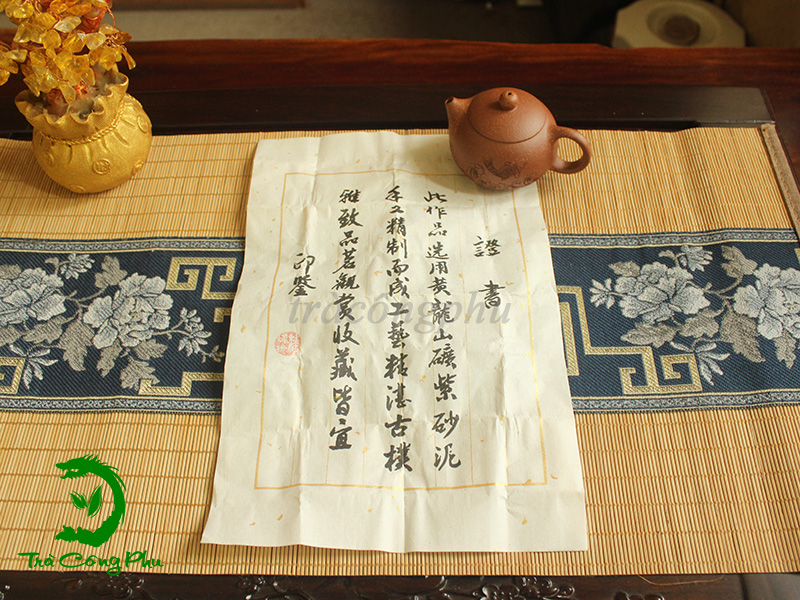 證書
此作品选用黄龍山礦紫砂泥
手工精制而成工藝精湛古樸
雅致品茗觀赏收藏皆宜
印鑒
tràcôngphu
Trà Công Phu